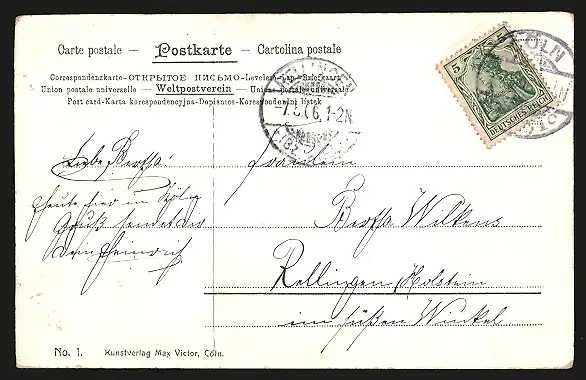 Carte postale — Postkarte — Cartolina postale
Correspondenzkarte-ОТКРЫТОЕ ПИСЬМО-Levelezö-Lap-Briefkaart
Union postale universelle — Weltpostverein — Unione postale universale
Post card-Karta korespondencyjna-Dopisnice-Korespondenčni listek
RELLINGEN
-7.3.06.1-2N.
CÖLN
5
DEUTSCHES REICH
Liebe Bertha!
Heute hier in Köln
Gruß sendet dir
Dein Heinrich
Fräulein
Bertha Wilkens
Rellingen, Holstein
im süßen Winkel
No. 1. Kunstverlag Max Victor, Cöln.